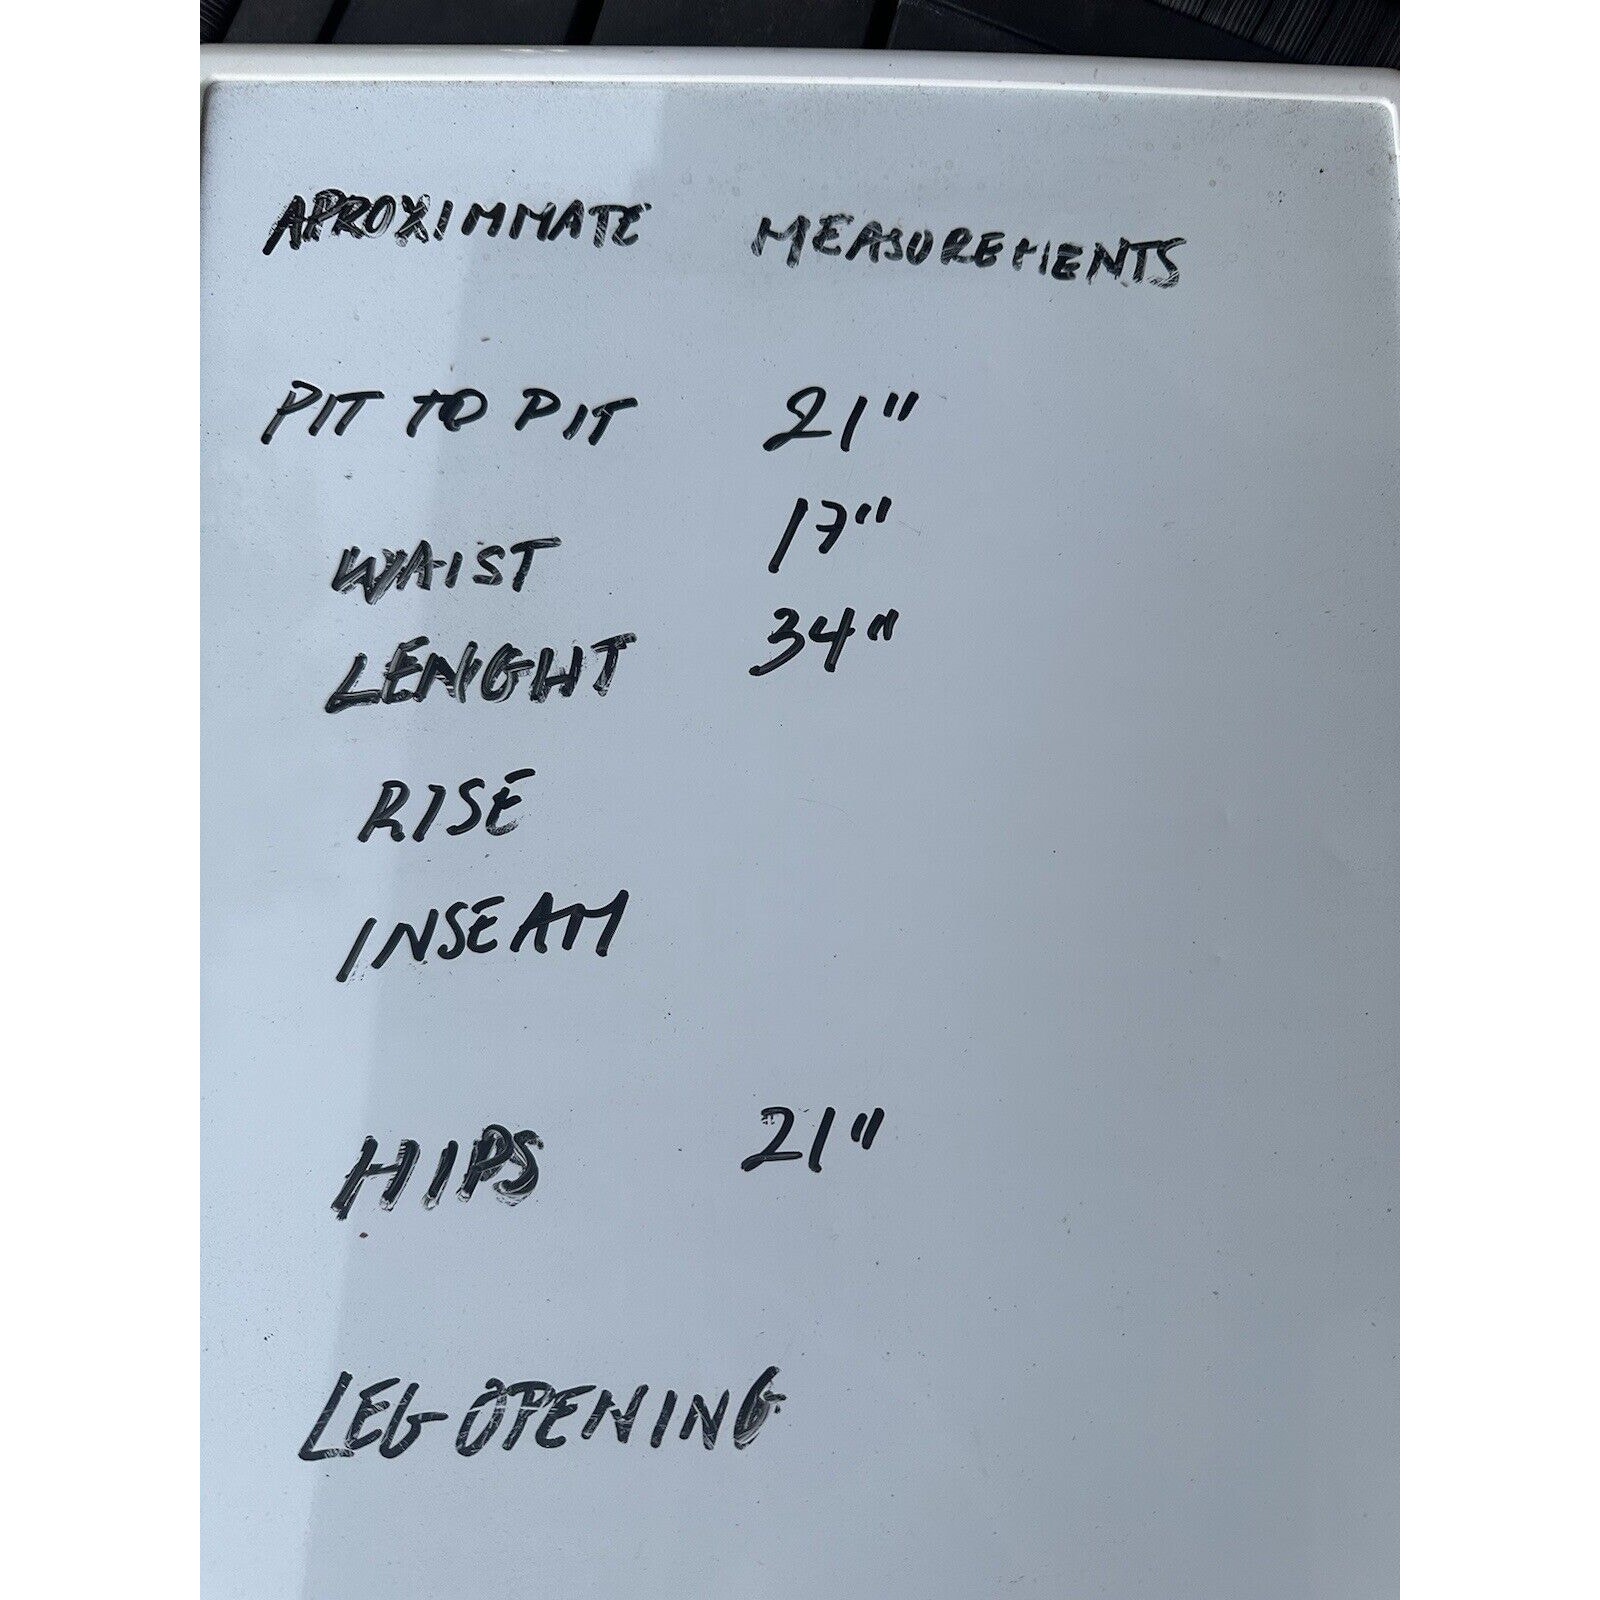 APROXIMMATE MEASUREMENTS
PIT TO PIT 21"
WAIST 17"
LENGHT 34"
RISE
INSEAM
HIPS 21"
LEG OPENING